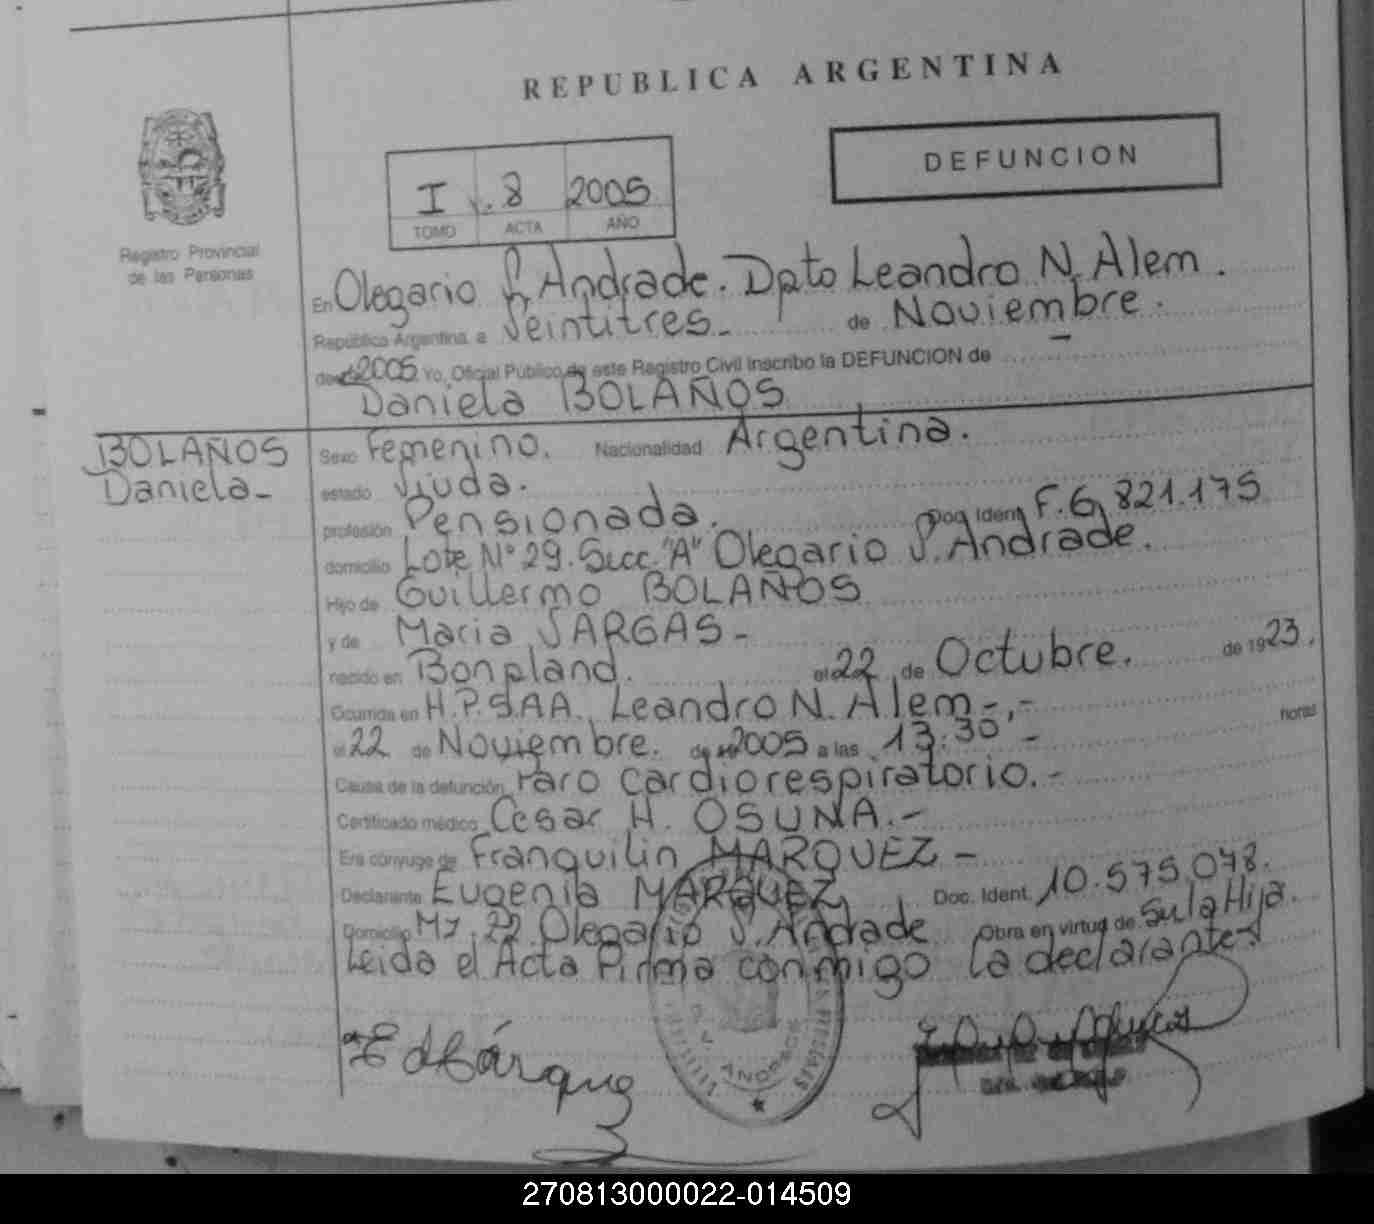 REPUBLICA ARGENTINA
DEFUNCION
I 8 2005
TOMO ACTA AÑO
Registro Provincial
de las Personas
En Olegario V. Andrade. Dpto Leandro N. Alem.
República Argentina a Veintitres de Noviembre.
de 2005 Yo, Oficial Público de este Registro Civil inscribo la DEFUNCION de
Daniela BOLAÑOS
BOLAÑOS
Daniela
Sexo Femenino. Nacionalidad Argentina.
estado Viuda.
profesión Pensionada. Doc. Ident. F.6.821.175
domicilio Lote Nº 29. Secc. "A" Olegario V. Andrade.
Hijo de Guillermo BOLAÑOS
y de Maria VARGAS -
nacido en Bonpland. el 22 de Octubre. de 1923.
Ocurrida en H.P.S.A.A. Leandro N. Alem -
el 22 de Noviembre. de 2005 a las 13:30 - horas
Causa de la defunción Paro cardiorespiratorio. -
Certificado médico Cesar H. OSUNA. -
Era cónyuge de Franquilin MARQUEZ -
Declarante Eugenia MARQUEZ Doc. Ident. 10.575.078.
Domicilio Olegario V. Andrade Obra en virtud de Su la Hija.
Leida el Acta Firma conmigo la declarante
O. V. ANDRADE
270813000022-014509